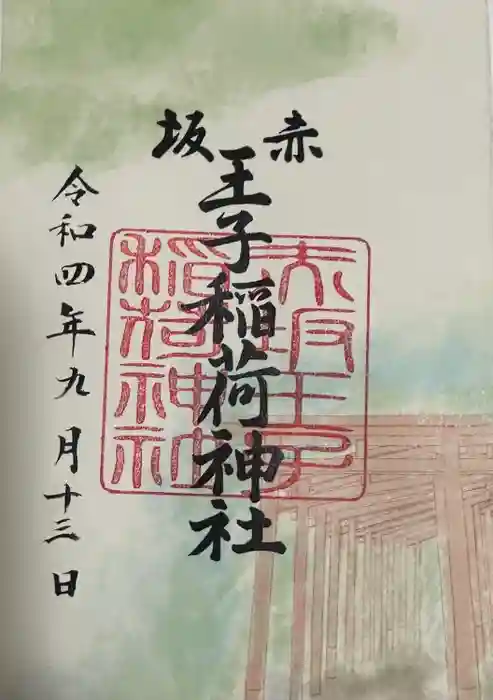 赤坂
王子稲荷神社
赤坂王子
稲荷神社
令和四年九月十三日